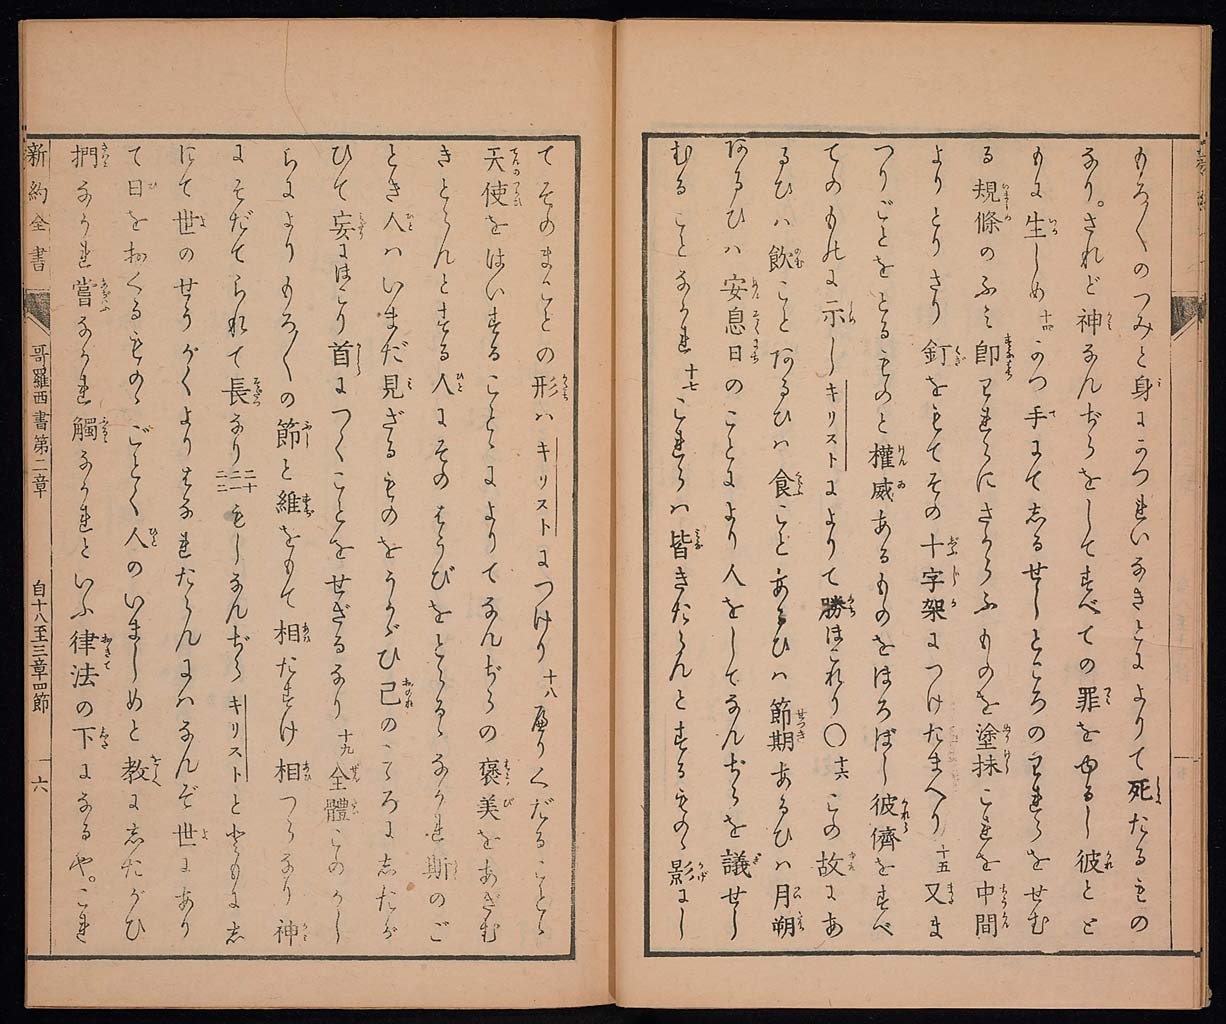 もろ〳〵のつみと身にかつれいなきとによりて死たるもの
なり。されど神なんぢらをしてすべての罪をゆるし彼とと
もに生しめ十四かつ手にてしるせしところのわれらをせむ
る規條のふみ即われらにさからふものを塗抹これを中間
よりとりさり釘をもてその十字架につけたまへり十五又ま
つりごとをとるものと權威あるものをほろぼし彼儕をすべ
てのものに示しキリストによりて勝ほこれり〇十六この故にあ
るひハ飲ことあるひハ食ことあるひハ節期あるひハ月朔
あるひハ安息日のことにより人をしてなんぢらを議せし
むることなかれ十七これらハ皆きたらんとするものゝ影にし
てそのまことの形ハキリストにつけり十八へりくだることゝ
天使をはいすることゝによりてなんぢらの褒美をあざむ
きとらんとする人にそのはうびをとらるゝなかれ斯のご
とき人ハいまだ見ざるものをうかゞひ己のこゝろにしたが
ひて妄にほこり首につくことをせざるなり十九全體このかし
らによりもろ〳〵の節と維をもて相たすけ相つらなり神
にそだてられて長なり二十二一二二もしなんぢらキリストとともにし
にて世のせうがくよりはなれたらんにハなんぞ世にあり
て日をおくるものゝごとく人のいましめと教にしたがひ
捫なかれ嘗なかれ觸なかれといふ律法の下にをるや。これ
新約全書 哥羅西書第二章 自十八至三章四節 六